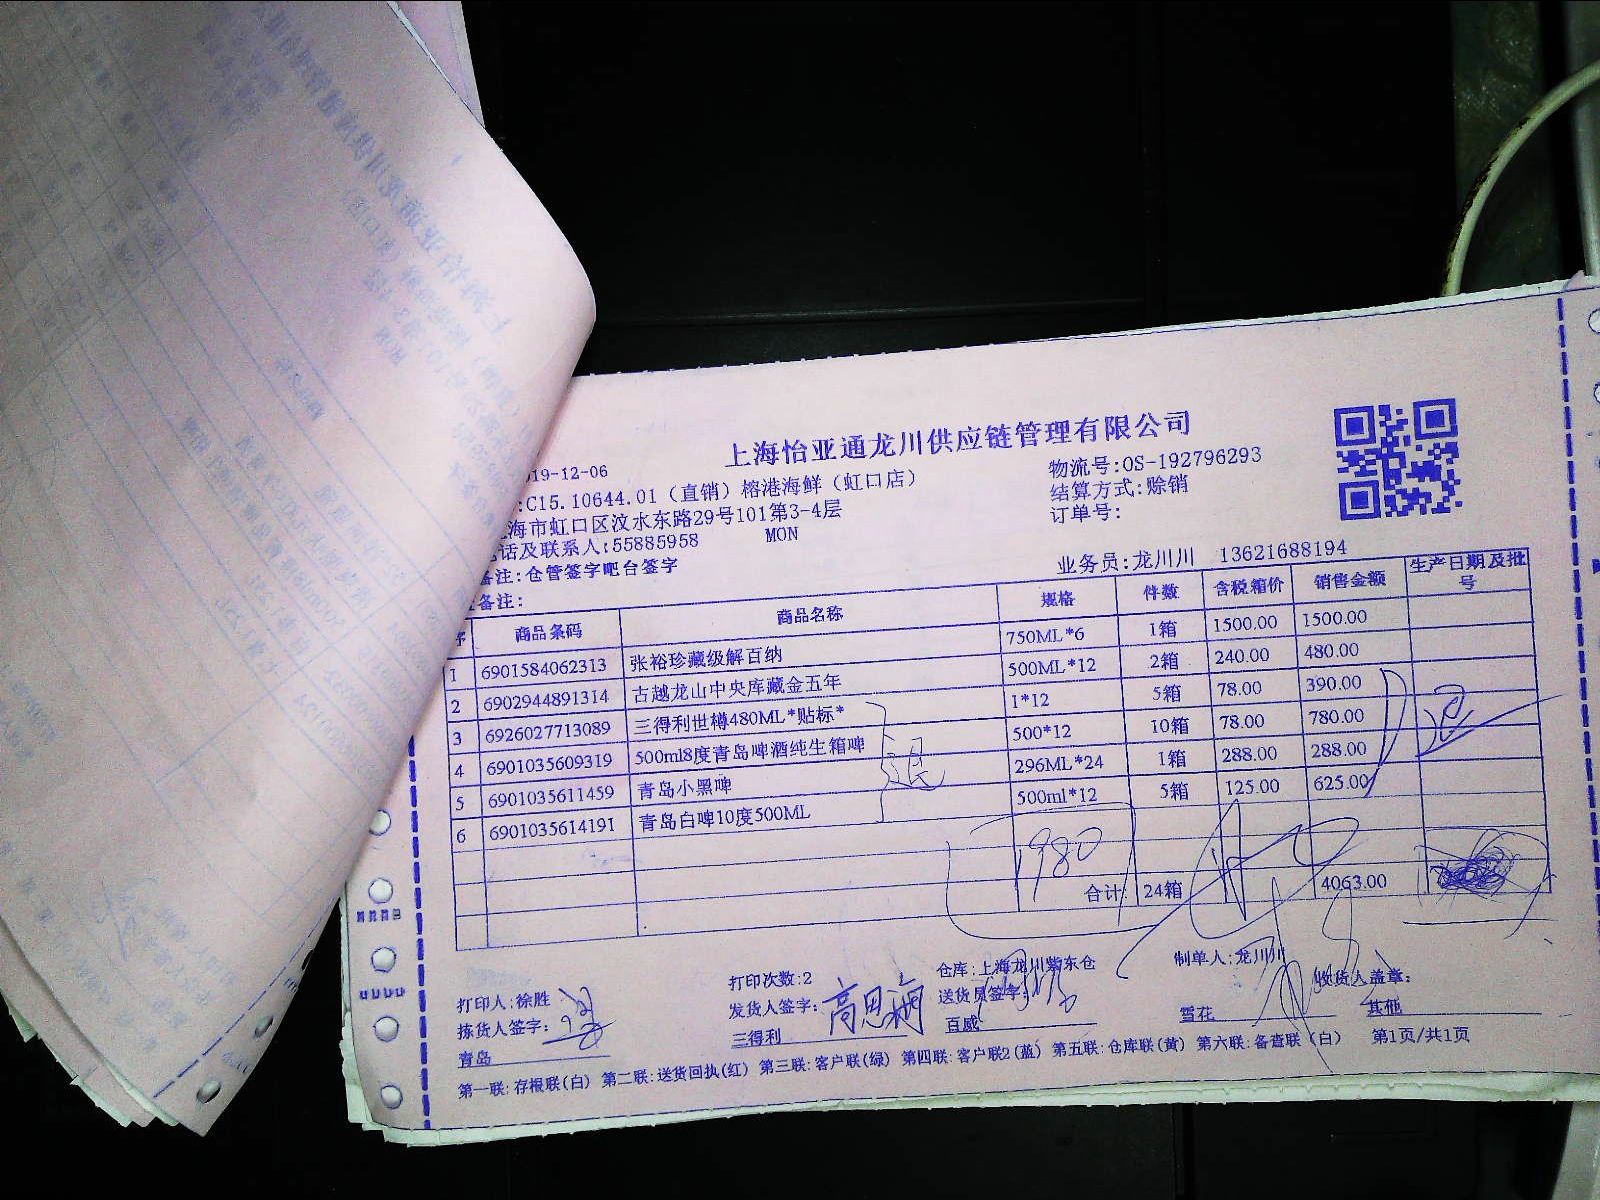 上海怡亚通龙川供应链管理有限公司
19-12-06
物流号:OS-192796293
:C15.10644.01（直销）榕港海鲜（虹口店）
结算方式:赊销
海市虹口区汶水东路29号101第3-4层
订单号:
话及联系人:55885958 MON
备注:仓管签字吧台签字
业务员:龙川川 13621688194
备注:
序 商品条码 商品名称 规格 件数 含税箱价 销售金额 生产日期及批号
1 6901584062313 张裕珍藏级解百纳 750ML*6 1箱 1500.00 1500.00
2 6902944891314 古越龙山中央库藏金五年 500ML*12 2箱 240.00 480.00
3 6926027713089 三得利世樽480ML*贴标* 1*12 5箱 78.00 390.00
4 6901035609319 500ml8度青岛啤酒纯生箱啤 500*12 10箱 78.00 780.00
5 6901035611459 青岛小黑啤 296ML*24 1箱 288.00 288.00
6 6901035614191 青岛白啤10度500ML 500ml*12 5箱 125.00 625.00
1980
合计: 24箱 4063.00
打印次数:2 仓库:上海龙川紫东仓 制单人:龙川川
打印人:徐胜 发货人签字: 高思 送货员签字: 收货人盖章:
拣货人签字: 三得利 百威 雪花 其他
青岛
第一联:存根联(白) 第二联:送货回执(红) 第三联:客户联(绿) 第四联:客户联2(蓝) 第五联:仓库联(黄) 第六联:备查联(白) 第1页/共1页